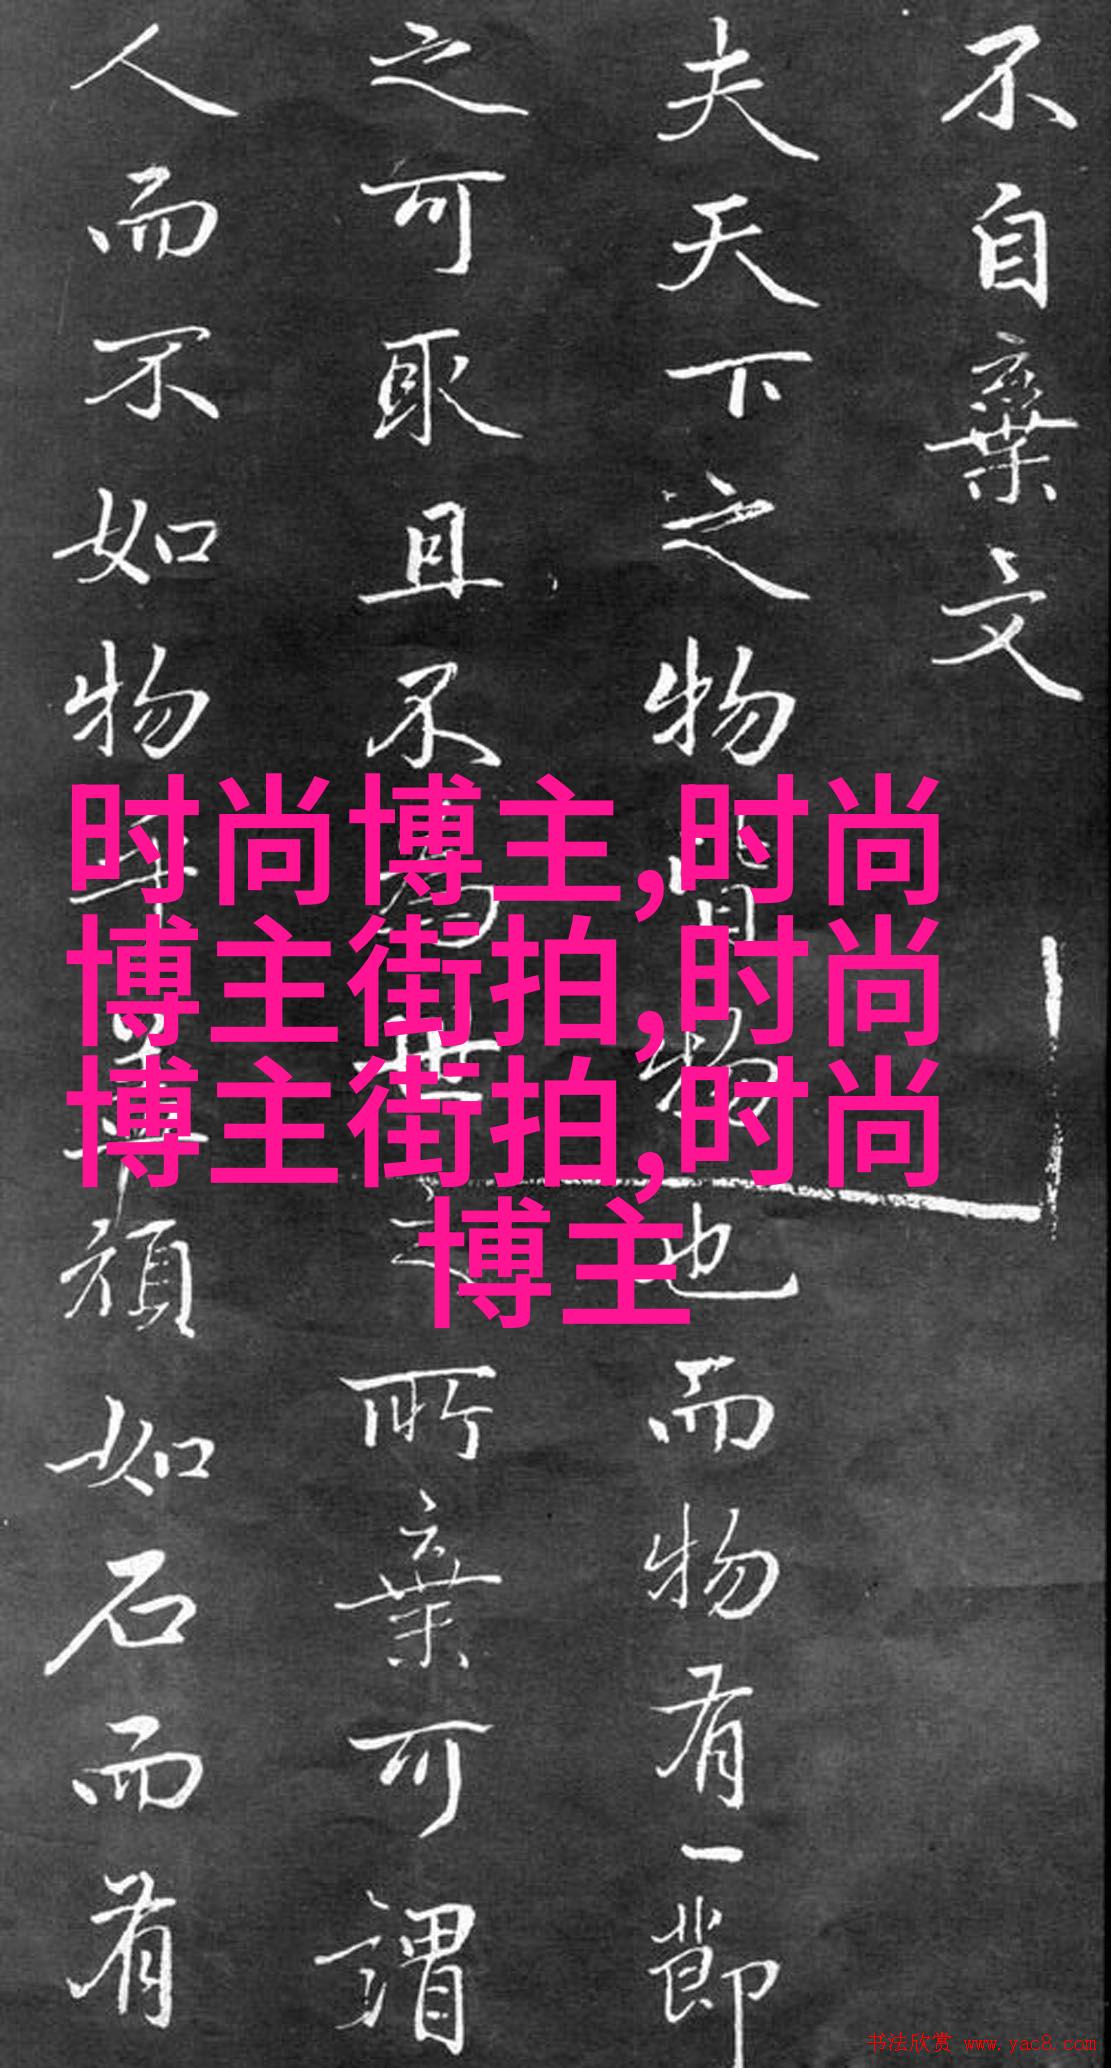 不自棄文
夫天下之物皆物也而物有一節
之可取且不為世之所棄可謂
人而不如物乎 頑如石而有
时尚博主,时尚
博主街拍,时尚
博主街拍,时尚
博主
书法欣赏 www.yac8.com